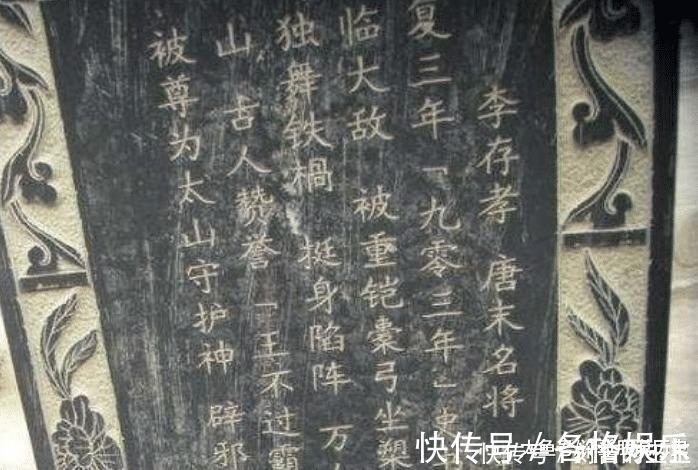 李存孝 唐末名将
复三年「九零三年」
临大敌 被重铠橐弓坐塑
独舞铁楇 挺身陷阵 万
山 古人赞誉「王不过霸
被尊为太山守护神 辟邪
快传号/名格娱乐